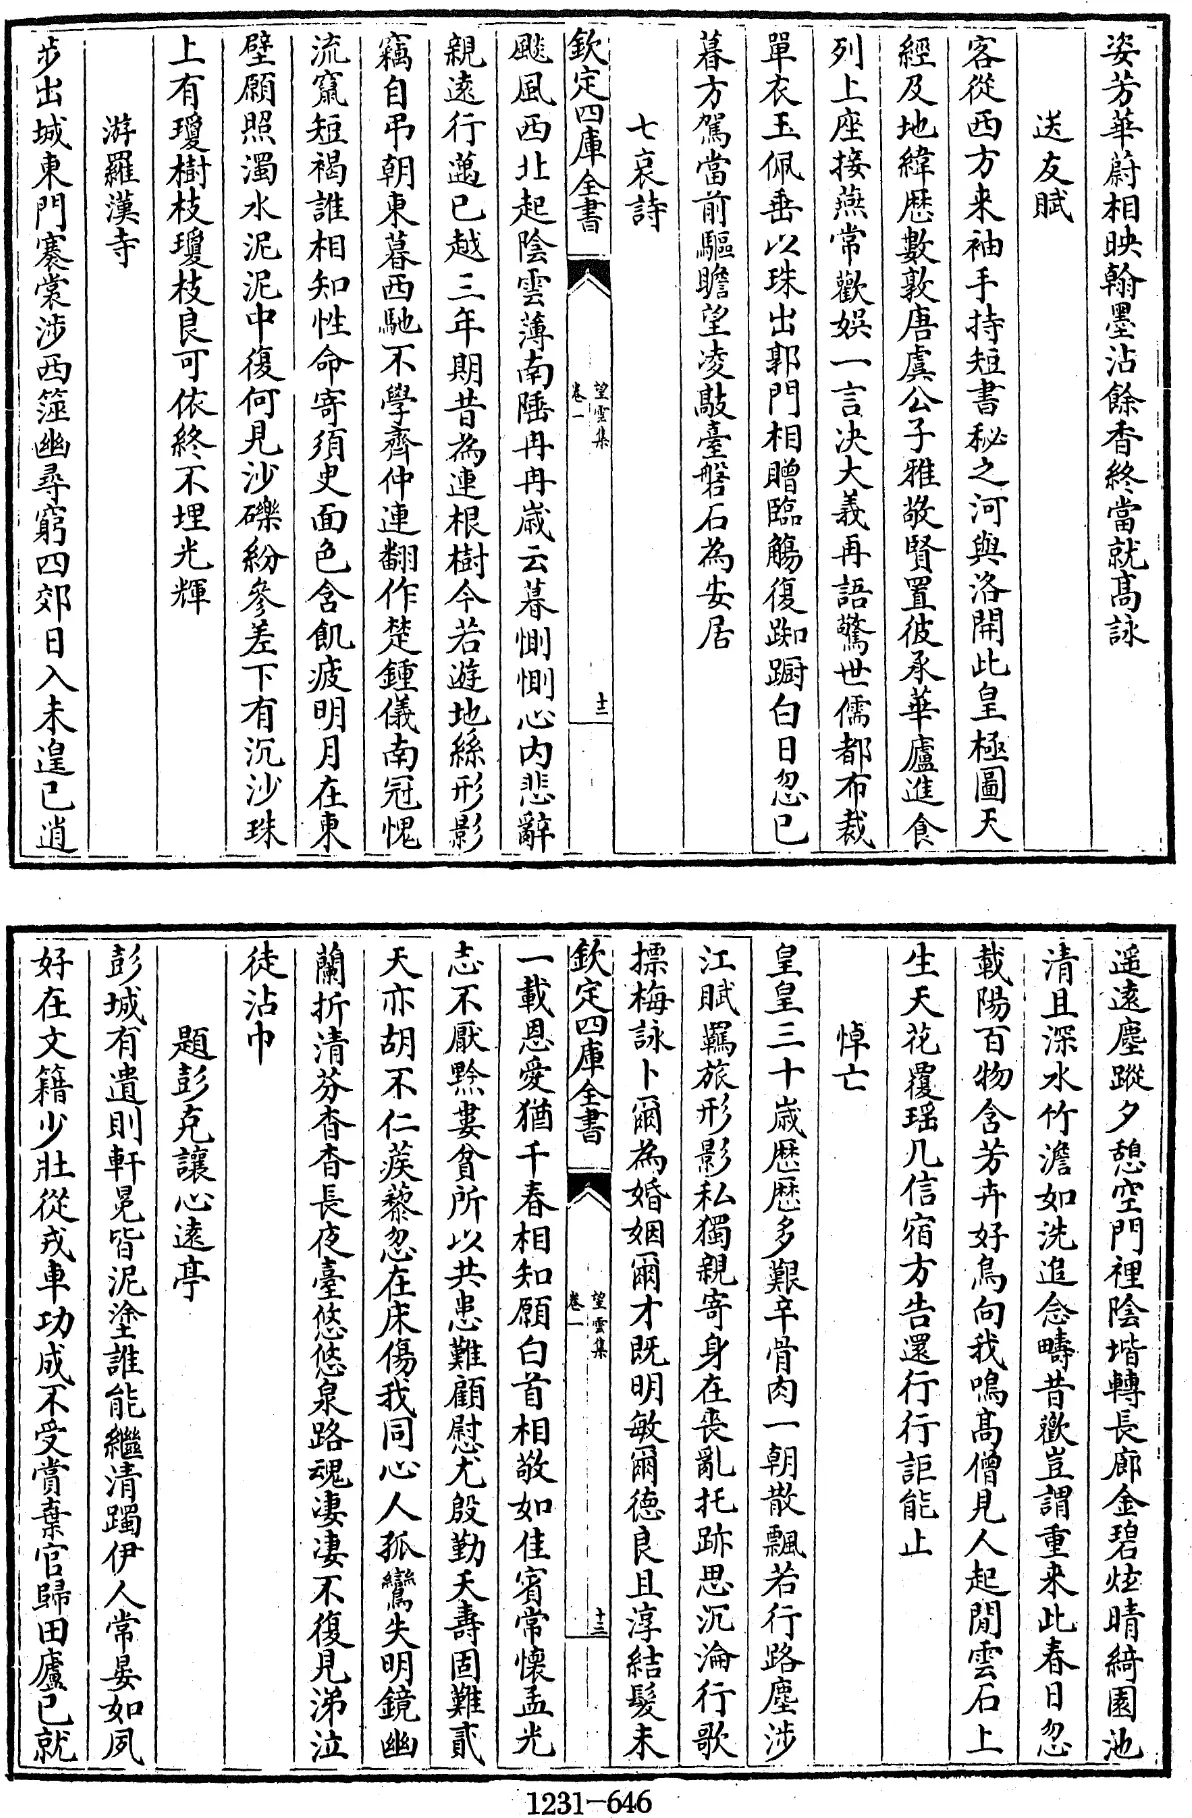 姿芳華蔚相映翰墨沾餘香終當就高詠
送友賦
客從西方來袖手持短書秘之河與洛開此皇極圖天
經及地緯歴數敦唐虞公子雅敬賢置彼承華廬進食
列上座接燕常歡娛一言决大義再語驚世儒都布裁
單衣玉佩垂以珠出郭門相贈臨觴復踟蹰白日忽已
暮方駕當前驅瞻望凌敲臺磐石為安居
七哀詩
欽定四庫全書
望雲集
卷一
十二
飈風西北起陰雲薄南陲冉冉嵗云暮惻惻心内悲辭
親遠行邁已越三年期昔為連根樹今若遊地絲形影
竊自弔朝東暮西馳不學齊仲連翻作楚鍾儀南冠愧
流竄短褐誰相知性命寄須臾面色含飢疲明月在東
壁願照濁水泥泥中復何見沙礫紛參差下有沉沙珠
上有瓊樹枝瓊枝良可依終不埋光輝
游羅漢寺
步出城東門褰裳涉西澨幽尋窮四郊日入未遑已逍
遥遠塵蹤夕憩空門裡陰堦轉長廊金碧炫晴綺園池
清且深水竹澹如洗追念疇昔歡豈謂重來此春日忽
載陽百物含芳卉好鳥向我鳴高僧見人起閒雲石上
生天花覆瑶几信宿方告還行行詎能止
悼亡
皇皇三十嵗歴歴多艱辛骨肉一朝散飄若行路塵涉
江賦羈旅形影私獨親寄身在喪亂托跡思沉淪行歌
摽梅詠卜爾為婚姻爾才既明敏爾德良且淳結髪未
欽定四庫全書
望雲集
卷一
十三
一載恩愛猶千春相知願白首相敬如佳賓常懷孟光
志不厭黔婁貧所以共患難顧慰尤殷勤夭壽固難貳
天亦胡不仁蒺藜忽在床傷我同心人孤鸞失明鏡幽
蘭折清芬杳杳長夜臺悠悠泉路魂凄凄不復見涕泣
徒沾巾
題彭克讓心遠亭
彭城有遺則軒冕皆泥塗誰能繼清躅伊人常晏如夙
好在文籍少壯從戎車功成不受賞棄官歸田廬已就
1231-646